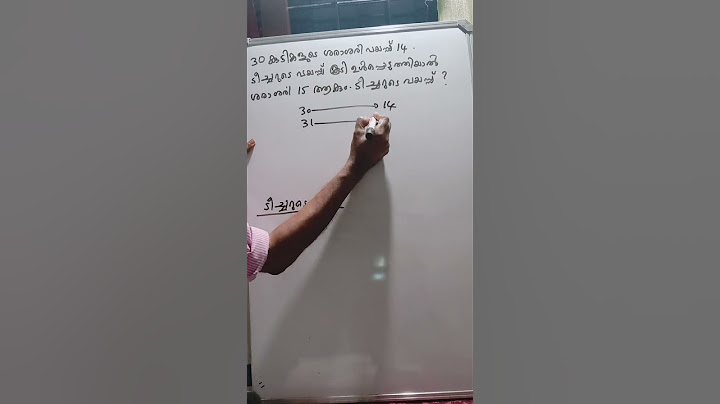 30 കുട്ടികളുടെ ശരാശരി വയസ്സ് 14.
ടീച്ചറുടെ വയസ്സ് കൂടി ഉൾപ്പെടുത്തിയാൽ
ശരാശരി 15 ആകും. ടീച്ചറുടെ വയസ്സ് ?
30 → 14
31
ടീച്ചറുടെ